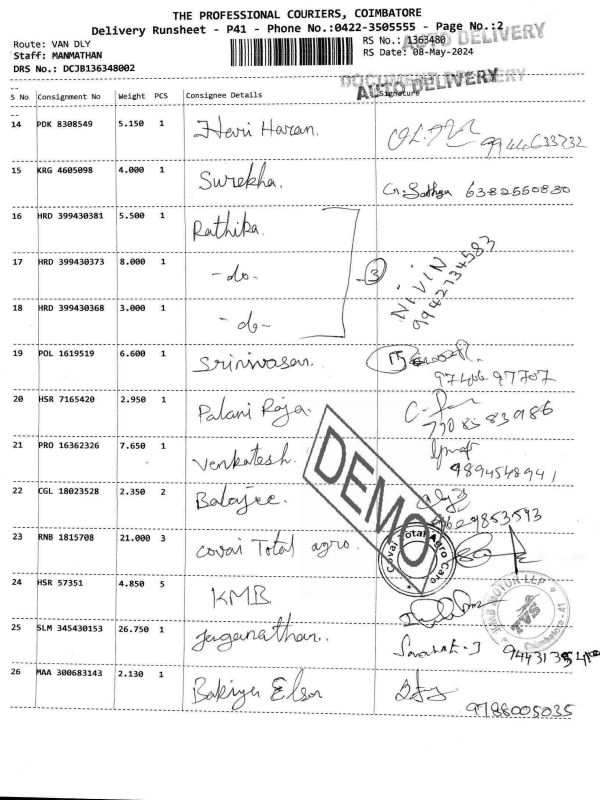 THE PROFESSIONAL COURIERS, COIMBATORE
Delivery Runsheet - P41 - Phone No.:0422-3505555 - Page No.:2
Route: VAN DLY RS No.: 1363480 AUTO DELIVERY
Staff: MANMATHAN RS Date: 08-May-2024
DRS No.: DCJB136348002
AUTO DELIVERY
S No Consignment No Weight PCS Consignee Details Signature
14 PDK 8308549 5.150 1 Hari Haran.
15 KRG 4605098 4.000 1 Surekha. G. Sathya 6382550830
16 HRD 399430381 5.500 1 Rathika.
17 HRD 399430373 8.000 1 -do- 3 NiViN 9942134583
18 HRD 399430368 3.000 1 -do-
19 POL 1619519 6.600 1 Srinivasan.
20 HSR 7165420 2.950 1 Palani Raja.
21 PRO 16362326 7.650 1 Venkatesh. 9894548941
22 CGL 18023528 2.350 2 Balajee.
DEMO
23 RNB 1815708 21.000 3 Covai Total agro. Covai Total Agro Care
24 HSR 57351 4.850 5 KMB TVS Coimbatore
25 SLM 345430153 26.750 1 Jaganathan.
26 MAA 300683143 2.130 1 9788005035